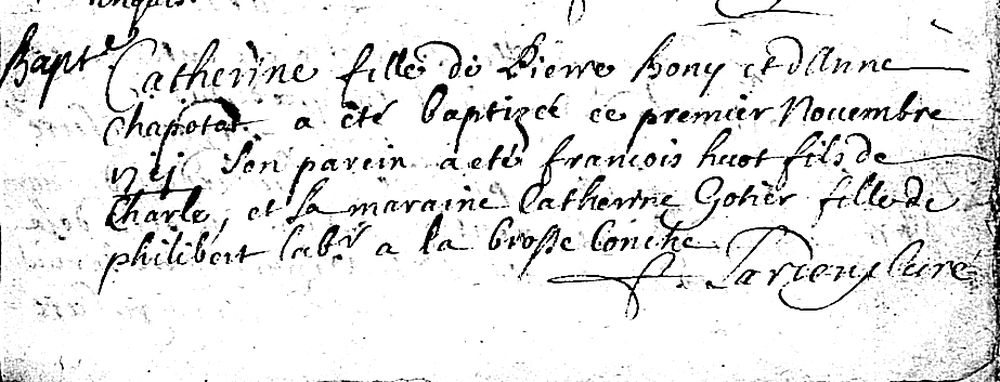 Bapt.e
Catherine fille de Pierre Bony et d'Anne
chapotat a été baptizée ce premier Novembre
son parein a eté francois huot fils de
Charle, et sa maraine Catherine Gotier fille de
philibert lab.r a la brosse Conche
curé